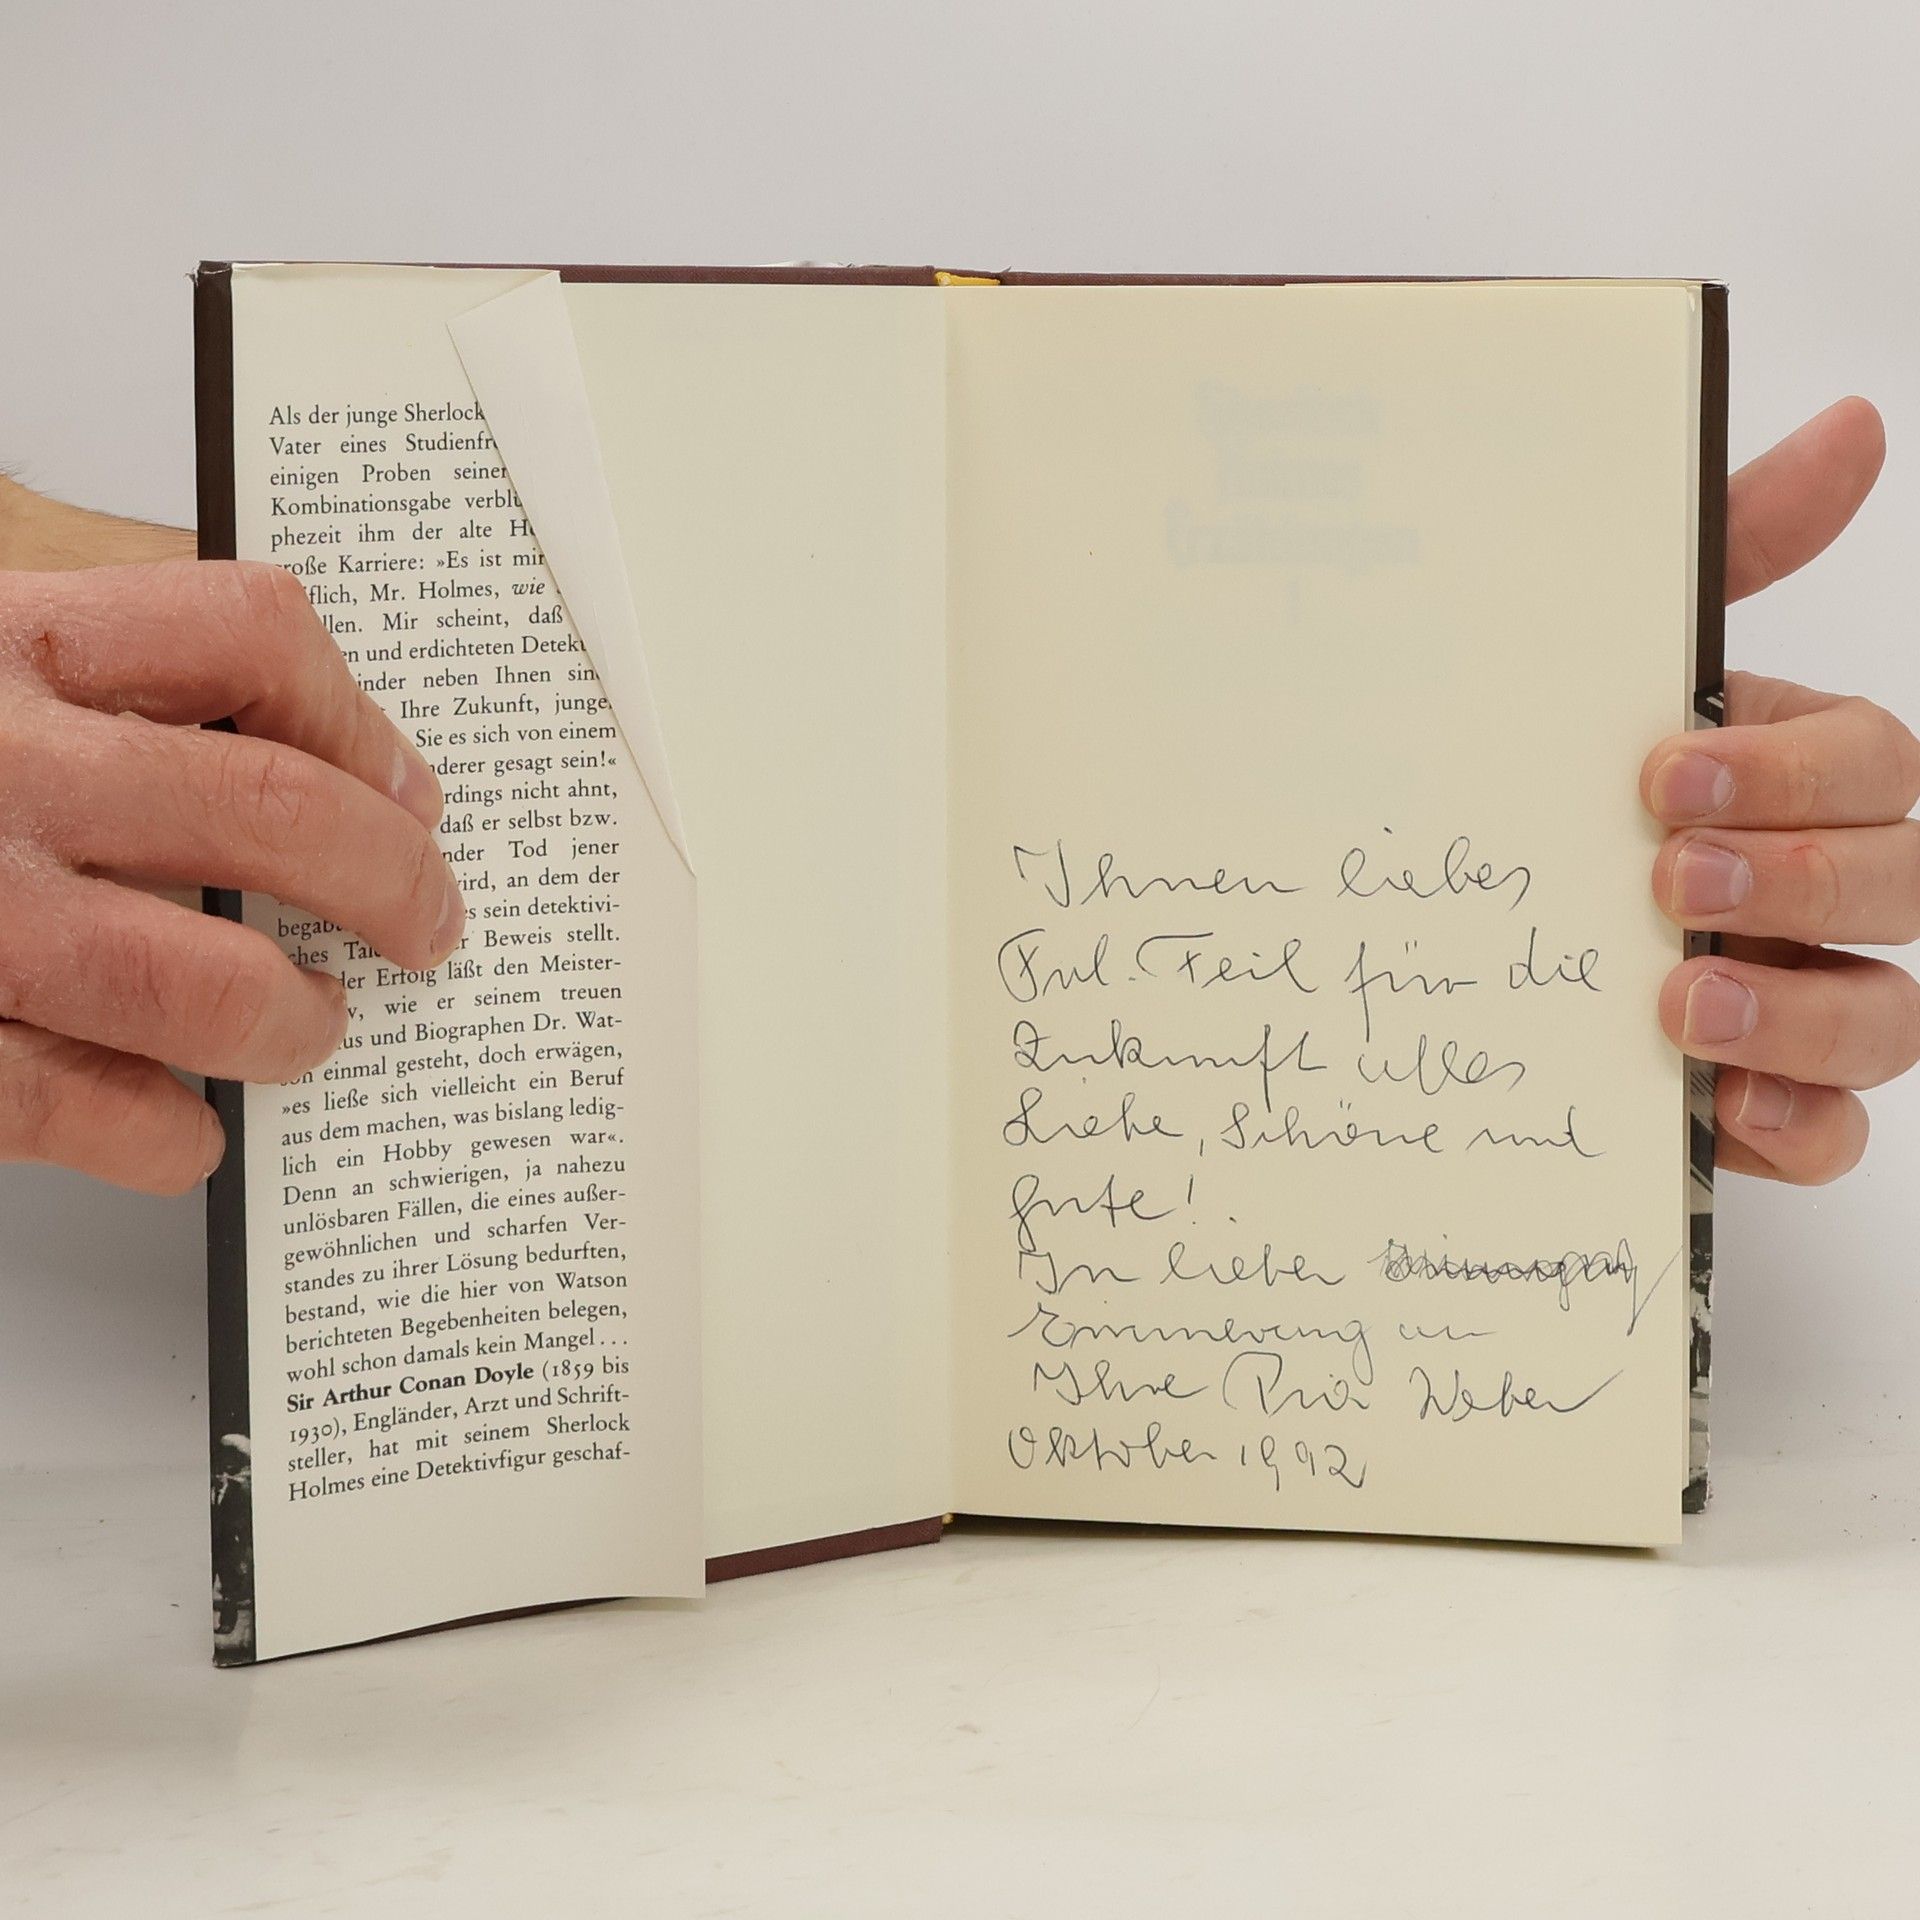 Als der junge Sherlock
Vater eines Studienfr
einigen Proben seiner
Kombinationsgabe verblü
phezeit ihm der alte H
große Karriere: »Es ist mir
flich, Mr. Holmes, wie
llen. Mir scheint, daß
en und erdichteten Detekt
inder neben Ihnen sin
Ihre Zukunft, junge
Sie es sich von einem
nderer gesagt sein!«
rdings nicht ahnt,
daß er selbst bzw.
nder Tod jener
ird, an dem der
es sein detektivi-
begab
sches Tal r Beweis stellt.
der Erfolg läßt den Meister-
v, wie er seinem treuen
us und Biographen Dr. Wat-
son einmal gesteht, doch erwägen,
»es ließe sich vielleicht ein Beruf
aus dem machen, was bislang ledig-
lich ein Hobby gewesen war«.
Denn an schwierigen, ja nahezu
unlösbaren Fällen, die eines außer-
gewöhnlichen und scharfen Ver-
standes zu ihrer Lösung bedurften,
bestand, wie die hier von Watson
berichteten Begebenheiten belegen,
wohl schon damals kein Mangel...
Sir Arthur Conan Doyle (1859 bis
1930), Engländer, Arzt und Schrift-
steller, hat mit seinem Sherlock
Holmes eine Detektivfigur geschaf-
Ihnen liebes
Frl. Feil für die
Zukunft alles
Liebe, Schöne und
Gute!
In lieber
Erinnerung an
Ihre Weber
Oktober 1992